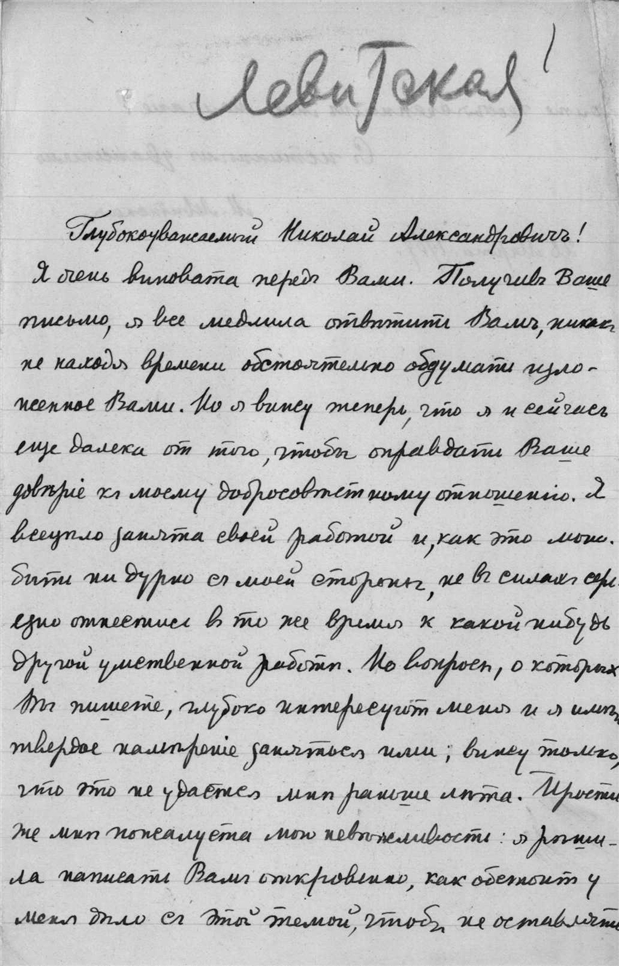 Левитская
Глубокоуважаемый Николай Александровичъ!
Я очень виновата передъ Вами. Получивъ Ваше
письмо, я все медлила отвѣтить Вамъ, никакъ
не находя времени обстоятельно обдумать изло-
женное Вами. Но я вижу теперь, что я и сейчасъ
еще далека от того, чтобы оправдать Ваше
довѣріе къ моему добросовѣстному отношенію. Я
всецѣло занята своей работой и, как это мож.
быть ни дурно съ моей стороны, не въ силахъ серь
езно отнестись в то же время к какой нибудь
другой умственной работѣ. Но вопросы, о которых
Вы пишете, глубоко интересуют меня и я имѣю
твердое намѣреніе заняться ими; вижу только,
что это не удастся мнѣ раньше лѣта. Простите
же мнѣ пожалуста мою невѣжливость: я рѣши-
ла написать Вамъ откровенно, как обстоит у
меня дѣло съ этой темой, чтобы не оставлять